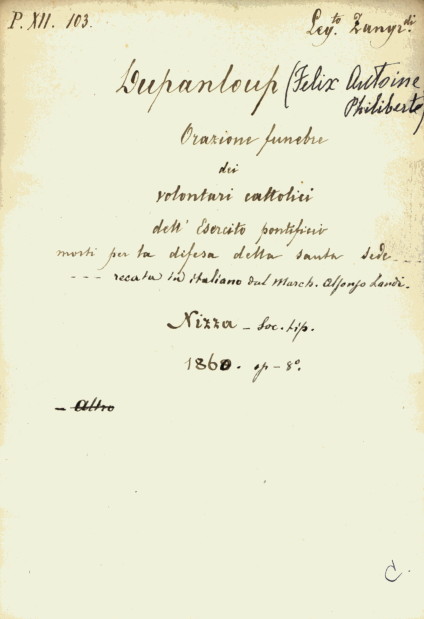 P. XII. 103. Leg.to Zangr.di
Dupanloup (Felix Antoine
Philiberto)
Orazione funebre
dei
volontari cattolici
dell' Esercito pontificio
morti per la difesa della santa sede ---
--- recata in italiano dal March. Alfonso Landi.
Nizza - Soc. tip.
1860. op - 8°.
- altro
C.